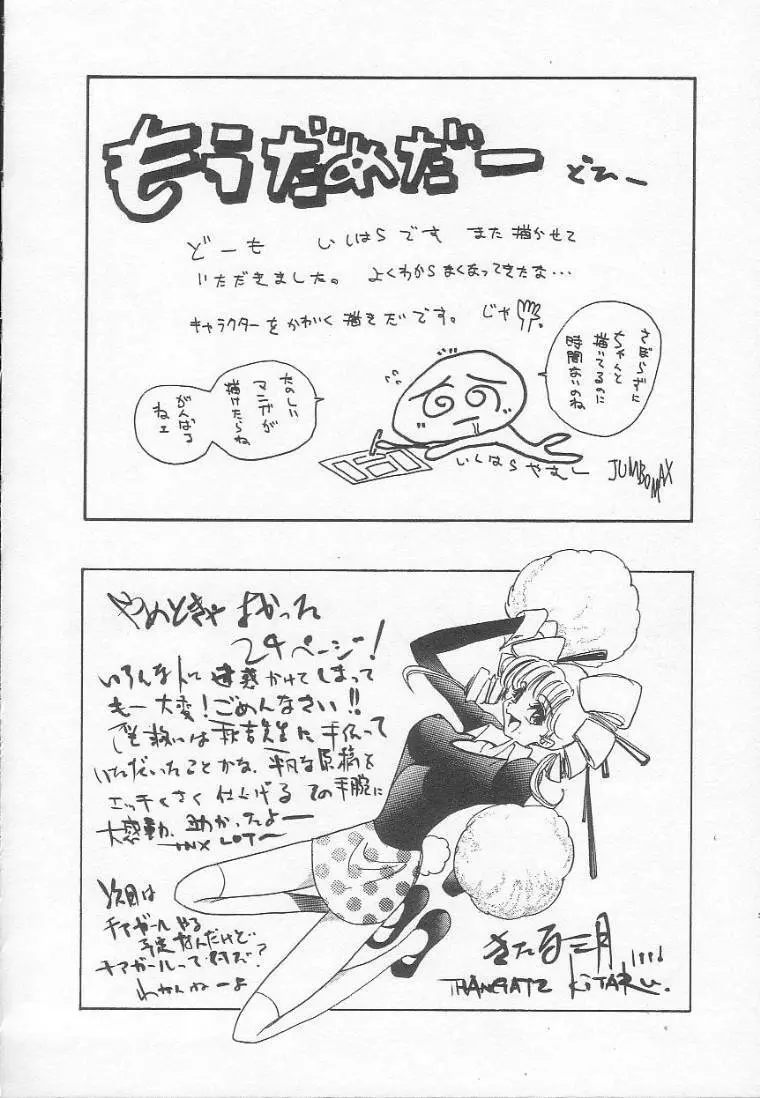 もうだめだー どひー
どーも いしはらです また描かせて
いただきました。 よくわからなくなってきたな…
キャラクターをかわいく描きたいです。 じゃ
さぼらずに
ちゃんと
描いてるのに
時間ないのね
たのしい
マンガが
描けたらね
がんばる
ねェ
いしはらやすしー
JUMBOMAX
やめときゃ よかった
24ページ!
いろんな人に 迷惑かけてしまって
もー大変! ごめんなさい!!
手伝って
いただいたことかな、平凡な原稿を
エッチくさく 仕上げる その手腕に
大感動、助かったよー
TNX LOT〜
次回は
チアガールやる
予定なんだけど…
チアガールって何だ?
わかんねーよ
KITARU.